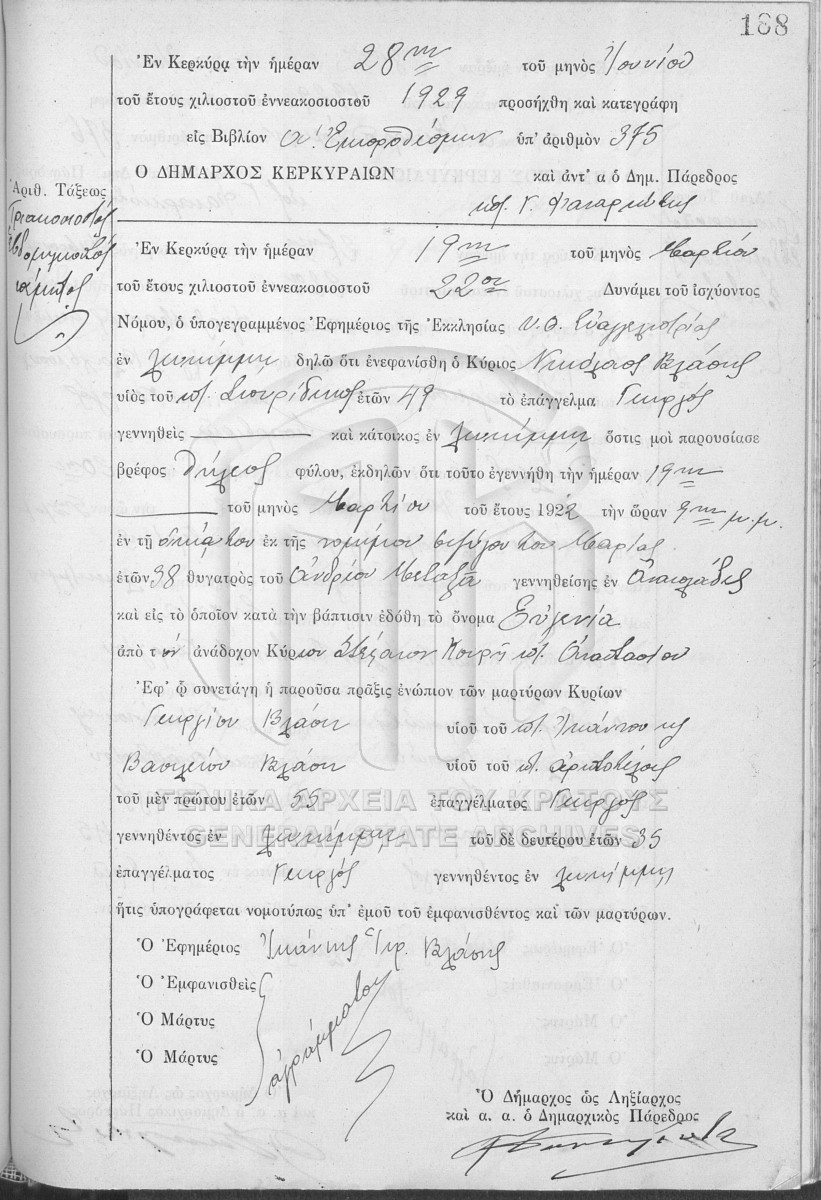 188
Ἐν Κερκύρᾳ τὴν ἡμέραν 28ην τοῦ μηνὸς Ἰουνίου
τοῦ ἔτους χιλιοστοῦ ἐννεακοσιοστοῦ 1929 προσήχθη καὶ κατεγράφη
εἰς Βιβλίον α' Ἐκπροθέσμων ὑπ' ἀριθμὸν 375
Ο ΔΗΜΑΡΧΟΣ ΚΕΡΚΥΡΑΙΩΝ καὶ ἀντ' α ὁ Δημ. Πάρεδρος
Ἀριθ. Τάξεως
Τριακοσιοστὸς
ἑβδομηκοστὸς
πέμπτος
Ἐν Κερκύρᾳ τὴν ἡμέραν 19ην τοῦ μηνὸς Μαρτίου
τοῦ ἔτους χιλιοστοῦ ἐννεακοσιοστοῦ 22ον Δυνάμει τοῦ ἰσχύοντος
Νόμου, ὁ ὑπογεγραμμένος Ἐφημέριος τῆς Ἐκκλησίας Υ.Θ. Εὐαγγελιστρίας
ἐν Λευκίμμῃ δηλῶ ὅτι ἐνεφανίσθη ὁ Κύριος Νικόλαος Βλάσης
υἱὸς τοῦ ποτ. Σπυρίδωνος ἐτῶν 49 τὸ ἐπάγγελμα Γεωργὸς
γεννηθεὶς καὶ κάτοικος ἐν Λευκίμμῃ ὅστις μοὶ παρουσίασε
βρέφος θήλεος φύλου, ἐκδηλῶν ὅτι τοῦτο ἐγεννήθη τὴν ἡμέραν 19ην
τοῦ μηνὸς Μαρτίου τοῦ ἔτους 1922 τὴν ὥραν 9ην μ.μ.
ἐν τῇ οἰκίᾳ του ἐκ τῆς νομίμου συζύγου του Μαρίας
ἐτῶν 38 θυγατρὸς τοῦ Ἀνδρέου Μεταξᾶ γεννηθείσης ἐν
καὶ εἰς τὸ ὁποῖον κατὰ τὴν βάπτισιν ἐδόθη τὸ ὄνομα Εὐγενία
ἀπὸ τὸν ἀνάδοχον Κύριον Στέφανον Κουρῆ ποτ. Ἀναστασίου
Ἐφ' ᾧ συνετάγη ἡ παροῦσα πρᾶξις ἐνώπιον τῶν μαρτύρων Κυρίων
Γεωργίου Βλάση υἱοῦ τοῦ ποτ. Ἰωάννου κῃ
Βασιλείου Βλάση υἱοῦ τοῦ ποτ. Ἀριστοτέλους
τοῦ μὲν πρώτου ἐτῶν 55 ἐπαγγέλματος Γεωργὸς
ΓΕΝΙΚΑ ΑΡΧΕΙΑ ΤΟΥ ΚΡΑΤΟΥΣ
GENERAL STATE ARCHIVES
γεννηθέντος ἐν Λευκίμμῃ τοῦ δὲ δευτέρου ἐτῶν 35
ἐπαγγέλματος Γεωργὸς γεννηθέντος ἐν Λευκίμμῃ
ἥτις ὑπογράφεται νομοτύπως ὑπ' ἐμοῦ τοῦ ἐμφανισθέντος καὶ τῶν μαρτύρων.
Ὁ Ἐφημέριος Ἰωάννης Βλάσης
Ὁ Ἐμφανισθεὶς
Ὁ Μάρτυς
Ὁ Μάρτυς
ἀγράμματοι
Ὁ Δήμαρχος ὡς Ληξίαρχος
καὶ α. α. ὁ Δημαρχικὸς Πάρεδρος